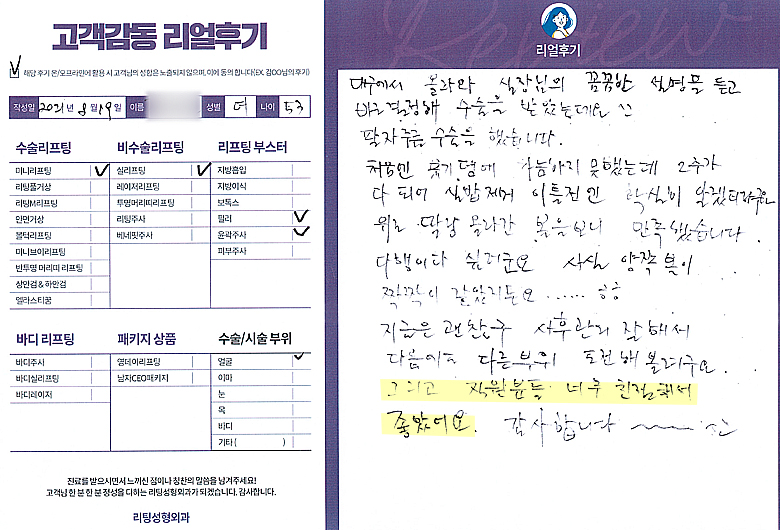 고객감동 리얼후기
해당 후기 온/오프라인에 활용 시 고객님의 성함은 노출되지 않으며, 이에 동의 합니다(EX. 김OO님의 후기)
작성일 2021년 8월 19일 이름 성별 여 나이 53
수술리프팅 비수술리프팅 리프팅 부스터
미니리프팅 실리프팅 지방흡입
리팅풀거상 레이저리프팅 지방이식
리팅M리프팅 투명머리띠리프팅 보톡스
안면거상 리팅주사 필러
볼턱리프팅 베네핏주사 윤곽주사
미니브이리프팅 피부주사
반투명 머리띠 리프팅
상안검 & 하안검
엘라스티꿈
바디 리프팅 패키지 상품 수술/시술 부위
바디주사 영데이리프팅 얼굴
바디실리프팅 남자CEO패키지 이마
바디레이저 눈
목
바디
기타 ( )
진료를 받으시면서 느끼신 점이나 칭찬의 말씀을 남겨주세요!
고객님 한 분 한 분 정성을 다하는 리팅성형외과가 되겠습니다. 감사합니다.
리팅성형외과
Review
리얼후기
대구에서 올라와 실장님의 꼼꼼한 설명을 듣고
바로결정해 수술을 받았는데요 ^^
팔자주름 수술을 했습니다.
처음엔 붓기 땜에 가늠하지 못했는데 2주가
다 되어 실밥제거 이틀전엔 확실히 알겠더라구요
위로 딱 올라간 볼을보니 만족했습니다.
다행이다 싶더군요 사실 양쪽 볼이
짝짝이 같았거든요 ...... ㅎㅎ
지금은 괜찮구 사후관리 잘해서
다음에도 다른부위 도전해 볼려구요.
그리고 직원분들 너무 친절해서
좋았어요. 감사합니다 ~~~ ^^